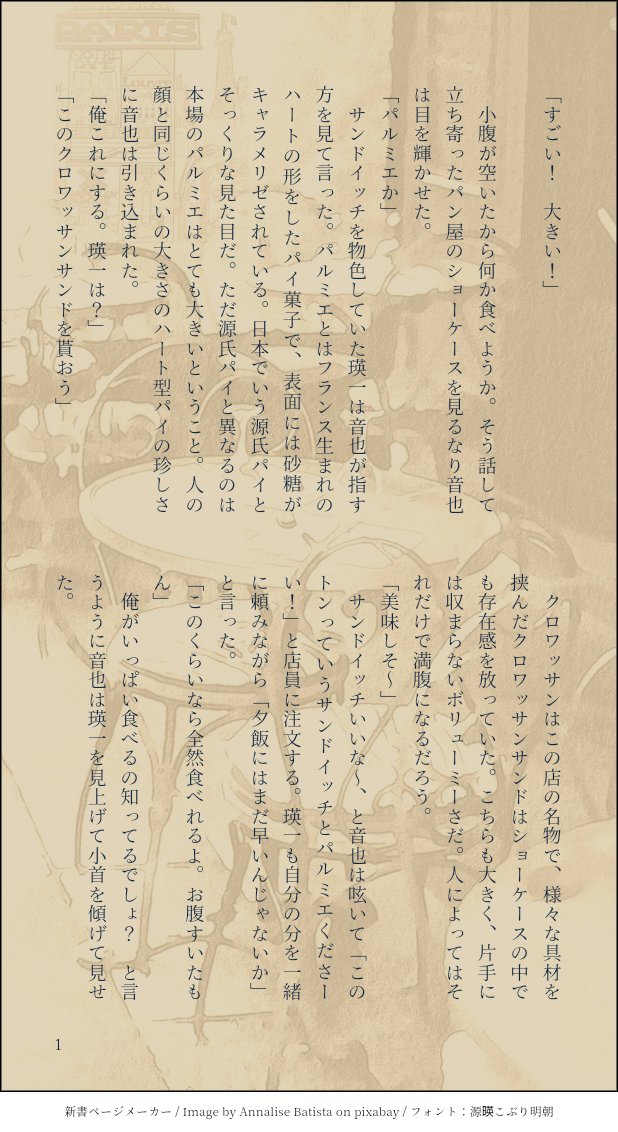 「すごい！　大きい！」
　小腹が空いたから何か食べようか。そう話して
立ち寄ったパン屋のショーケースを見るなり音也
は目を輝かせた。
「パルミエか」
　サンドイッチを物色していた瑛一は音也が指す
方を見て言った。パルミエとはフランス生まれの
ハートの形をしたパイ菓子で、表面には砂糖が
キャラメリゼされている。日本でいう源氏パイと
そっくりな見た目だ。ただ源氏パイと異なるのは
本場のパルミエはとても大きいということ。人の
顔と同じくらいの大きさのハート型パイの珍しさ
に音也は引き込まれた。
「俺これにする。瑛一は？」
「このクロワッサンサンドを貰おう」
　クロワッサンはこの店の名物で、様々な具材を
挟んだクロワッサンサンドはショーケースの中で
も存在感を放っていた。こちらも大きく、片手に
は収まらないボリューミーさだ。人によってはそ
れだけで満腹になるだろう。
「美味しそ〜」
　サンドイッチいいな〜、と音也は呟いて「この
トンっていうサンドイッチとパルミエくださー
い！」と店員に注文する。瑛一も自分の分を一緒
に頼みながら「夕飯にはまだ早いんじゃないか」
と言った。
「このくらいなら全然食べれるよ。お腹すいたも
ん」
　俺がいっぱい食べるの知ってるでしょ？　と言
うように音也は瑛一を見上げて小首を傾げて見せ
た。
1
PARIS
新書ページメーカー / Image by Annalise Batista on pixabay / フォント：源暎こぶり明朝